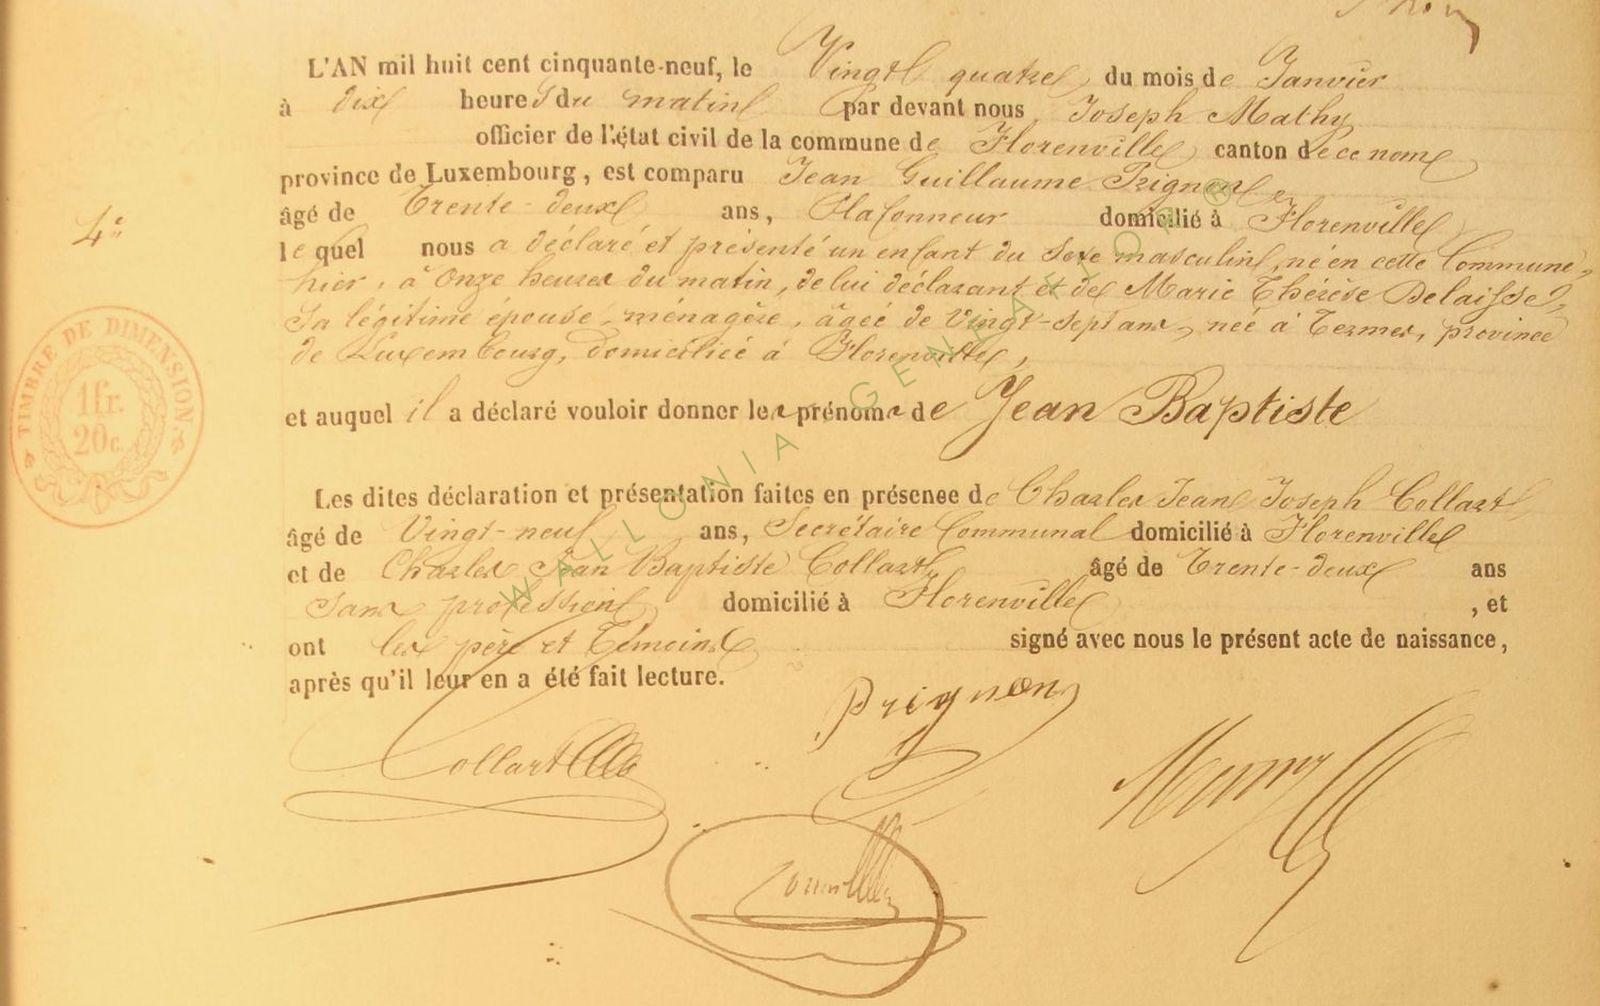 L'AN mil huit cent cinquante-neuf, le Vingt quatre du mois de Janvier
à dix heures du matin par devant nous Joseph Mathy
officier de l'état civil de la commune de Florenville canton de ce nom
province de Luxembourg, est comparu Jean Guillaume Prignon
âgé de Trente-deux ans, Plafonneur domicilié à Florenville
4e
lequel nous a déclaré et présenté un enfant du sexe masculin, né en cette Commune,
hier, à onze heures du matin, de lui déclarant et de Marie Thérèse Delaisse,
sa légitime épouse, ménagère, âgée de Vingt-sept ans, née à Termes, province
de Luxembourg, domiciliée à Florenville,
TIMBRE DE DIMENSION.
1 fr.
20c.
et auquel il a déclaré vouloir donner les prénoms de Jean Baptiste
Les dites déclaration et présentation faites en présence de Charles Jean Joseph Collart
âgé de Vingt-neuf ans, Secrétaire Communal domicilié à Florenville
et de Charles Jean Baptiste Collart âgé de Trente-deux ans
sans profession domicilié à Florenville, et
ont les père et Témoins signé avec nous le présent acte de naissance,
après qu'il leur en a été fait lecture.
Prignon
Collart
WALLONIA GENEALOG ®